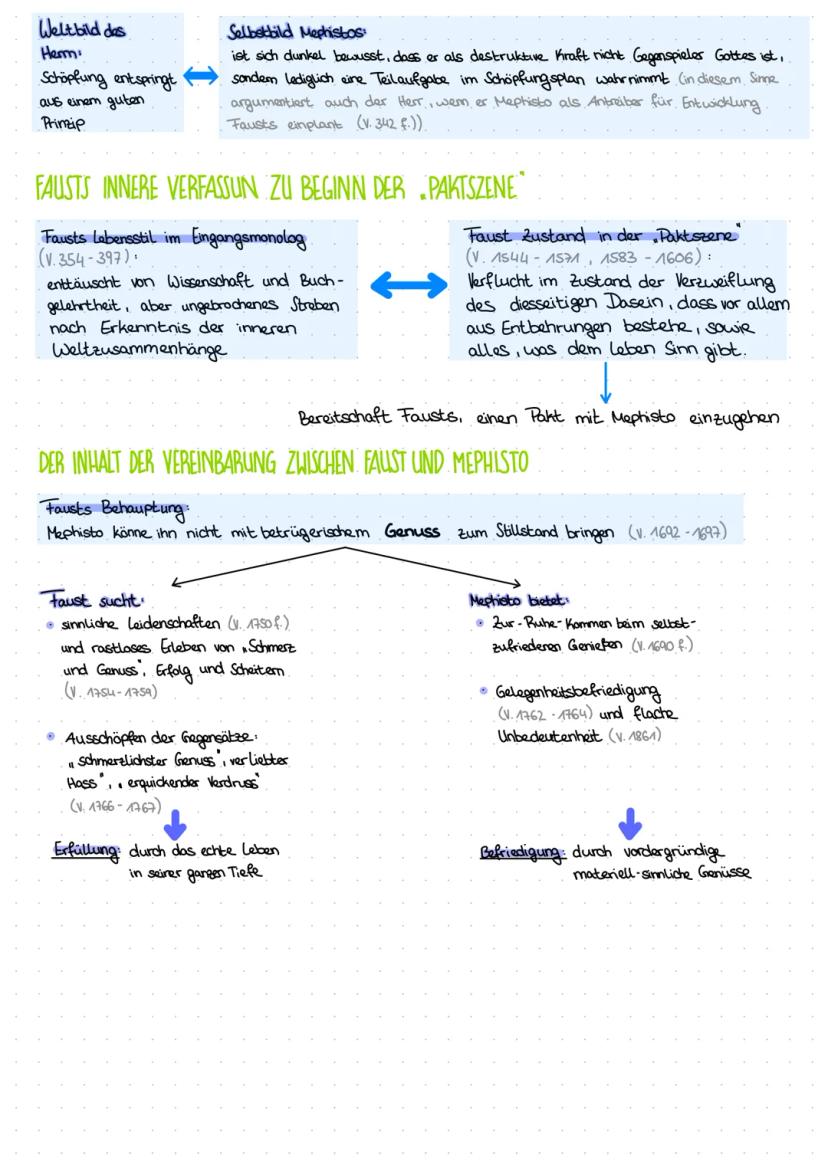 Weltbild des
Herrn:
Schöpfung entspringt
aus einem guten
Prinzip
Selbstbild Mephistos:
ist sich dunkel bewusst, dass er als destruktive Kraft nicht Gegenspieler Gottes ist,
sondern lediglich eine Teilaufgabe im Schöpfungsplan wahrnimmt (in diesem Sinne
argumentiert auch der Herr, wenn er Mephisto als Antreiber für Entwicklung
Fausts einplant (V. 342 f.))
FAUSTS INNERE VERFASSUN ZU BEGINN DER „PAKTSZENE"
Fausts Lebensstil im Eingangsmonolog
(V. 354-397):
enttäuscht von Wissenschaft und Buch-
gelehrtheit, aber ungebrochenes Streben
nach Erkenntnis der inneren
Weltzusammenhänge
Faust Zustand in der „Paktszene"
(V. 1544 - 1571, 1583 - 1606):
Verflucht im Zustand der Verzweiflung
des diesseitigen Dasein, dass vor allem
aus Entbehrungen bestehe, sowie
alles, was dem Leben Sinn gibt.
Bereitschaft Fausts, einen Pakt mit Mephisto einzugehen
DER INHALT DER VEREINBARUNG ZWISCHEN FAUST UND MEPHISTO
Fausts Behauptung:
Mephisto könne ihn nicht mit betrügerischem Genuss zum Stillstand bringen (V. 1692 - 1697)
Faust sucht:
• sinnliche Leidenschaften (V. 1750 f.)
und rastloses Erleben von „Schmerz
und Genuss", Erfolg und Scheitern
(V. 1754-1759)
• Ausschöpfen der Gegensätze:
„schmerzlichster Genuss", verliebter
Hass", „erquickender Verdruss"
(V. 1766 - 1767)
Erfüllung: durch das echte Leben
in seiner ganzen Tiefe
Mephisto bietet:
• Zur-Ruhe-Kommen beim selbst-
zufriedenen Genießen (V. 1690 f.)
• Gelegenheitsbefriedigung
(V. 1762 - 1764) und flache
Unbedeutenheit (V. 1861)
Befriedigung: durch vordergründige
materiell-sinnliche Genüsse